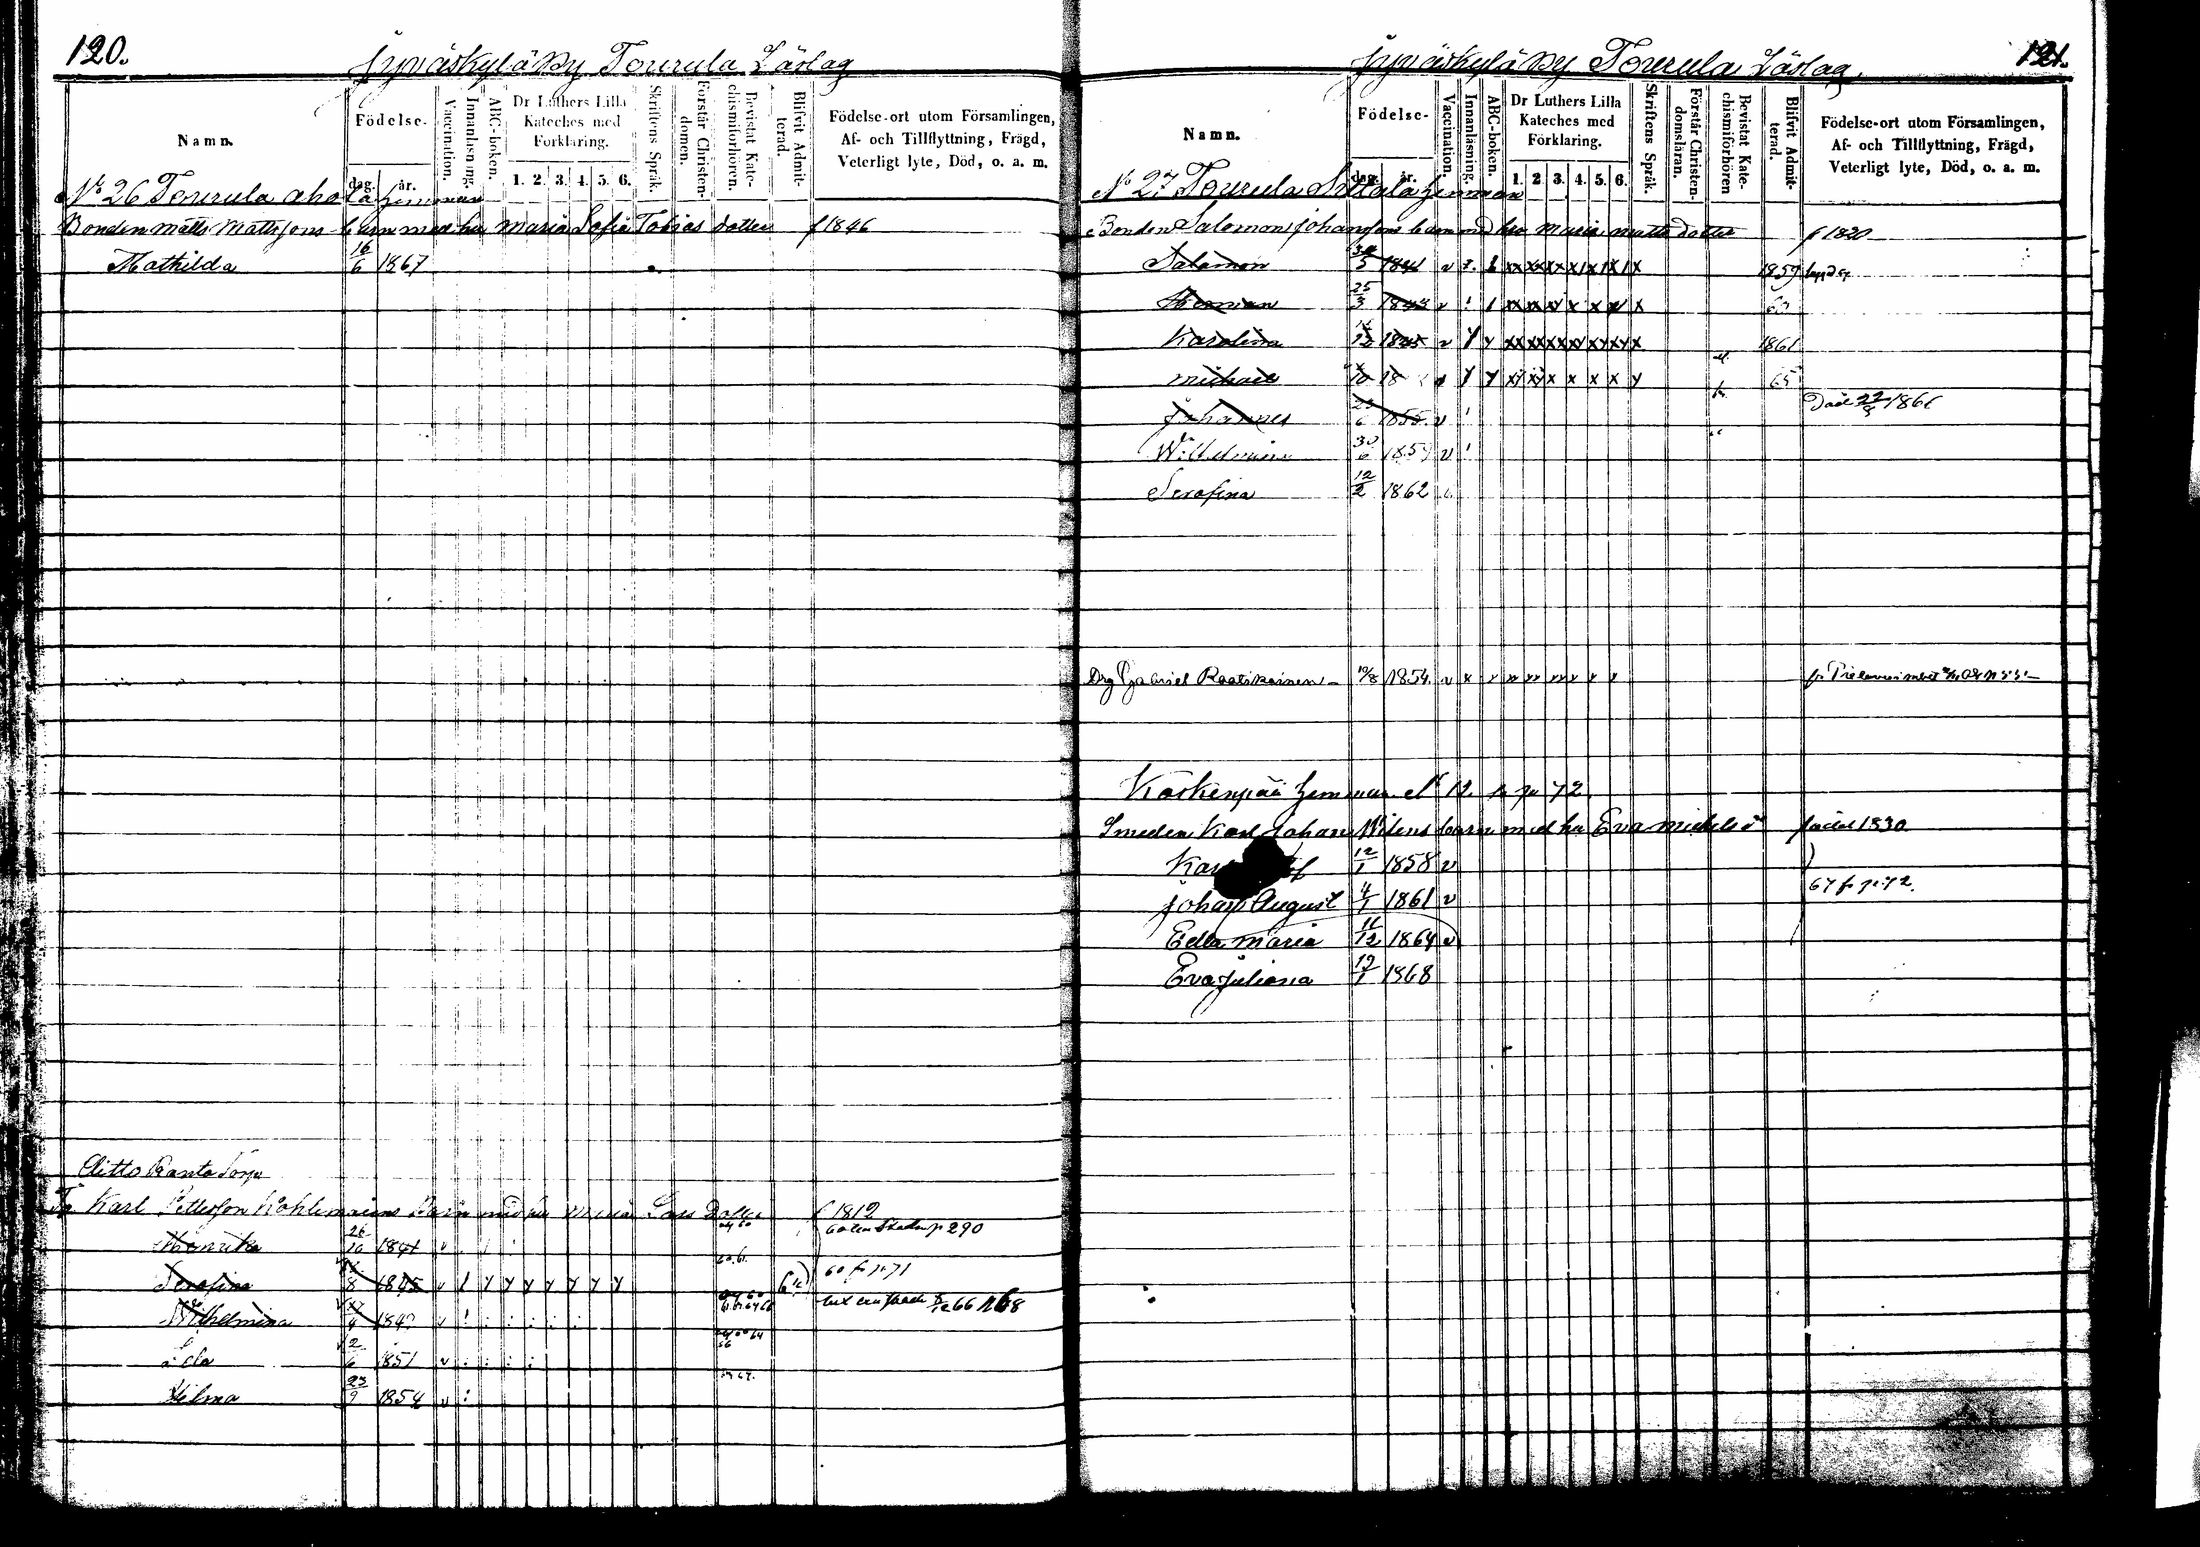 120.
Jyväskylä By Tourula Läslag
Namn.
Födelse-
dag. år.
Vaccination.
Innanläsning.
ABC-boken.
Dr Luthers Lilla Kateches med Förklaring.
1. 2. 3. 4. 5. 6.
Skriftens Språk.
Förstår Christendomen.
Bevistat Katechismiförhören.
Blifvit Admitterad.
Födelse-ort utom Församlingen, Af- och Tillflyttning, Frägd, Veterligt lyte, Död, o. a. m.
No 26 Tourula Ahola hemman
Bonden Matts Mattssons barn med hu Maria Sofia Tobias dotter f 1846
Mathilda 16/6 1867
Ditto Ranta Torp
Tp Karl Petterson Kohlemainens Barn med hu Maria Lars Dotter f 1812
Henrika 26/10 1841 v p 290
Serafina 8 1845 v 60 f p 71
Wilhelmina 4 1849 v 66
Ida 2/6 1851 v
Hilma 23/9 1854 v
121.
Jyväskylä By Tourula Läslag
Namn.
Födelse-
dag. år.
Vaccination.
Innanläsning.
ABC-boken.
Dr Luthers Lilla Kateches med Förklaring.
1. 2. 3. 4. 5. 6.
Skriftens Språk.
Förstår Christendomsläran.
Bevistat Katechismiförhören
Blifvit Admitterad.
Födelse-ort utom Församlingen, Af- och Tillflyttning, Frägd, Veterligt lyte, Död, o. a. m.
No 27 Tourula hemman
Bonden Salomon Johanssons barn med hu Maria Matts dotter f 1820
Salomon 5 1841 v 1859
Herman 25/3 1843 v 60
Karolina 12 1845 v 1861
Michael 10 v 65
Johannes 23/6 1855 v Död 22/8 1861
Wilhelmina 30/6 1859 v
Serafina 12/2 1862
Drg Gabriel Raatikainen 19/8 1854 v
Koskenpää hemman No 12 p 72
Smeden Karl Johan barn med hu Eva Michelsd född 1830
12/1 1858 v
Johan August 4/1 1861 v 67 f p 72
Edla Maria 11/12 1864 v
Eva Juliana 19/1 1868